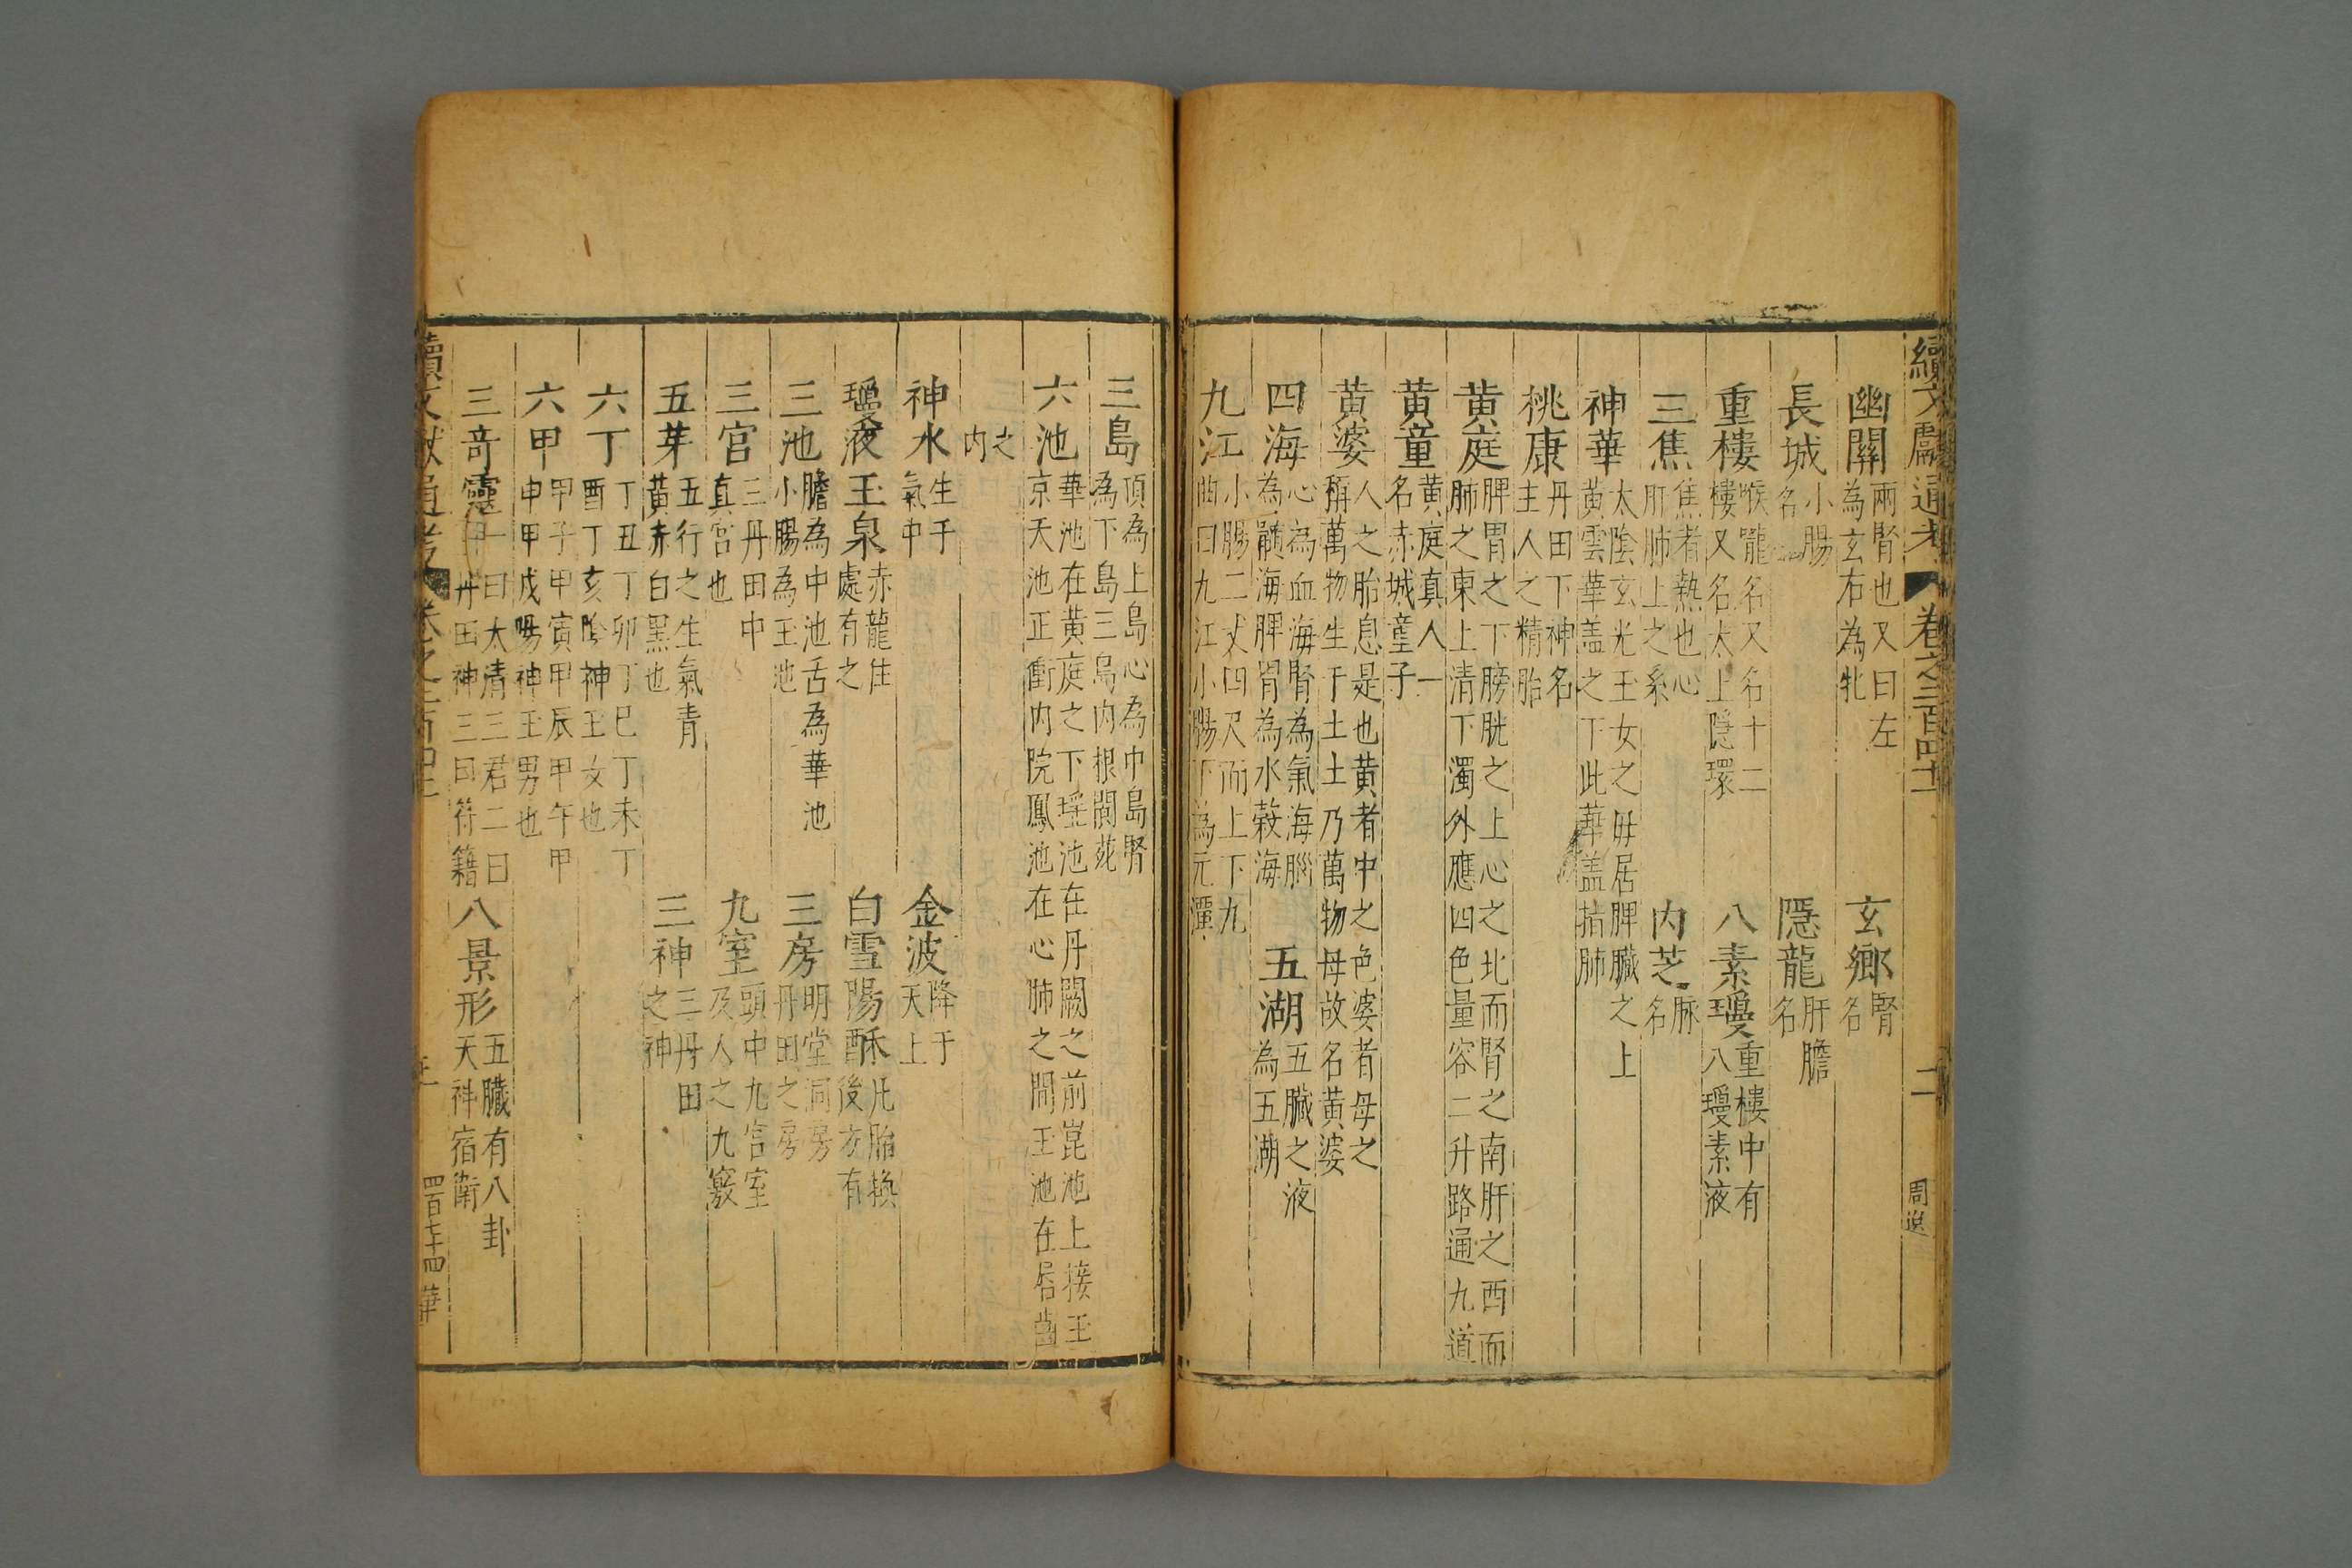 續文獻通考 卷之二百四十二 二 周送
幽關兩腎也又曰左為玄右為牝 玄鄉腎名
長城小腸名 隱龍肝膽名
重樓喉嚨名又名十二樓又名太上隱環 八素瓊重樓中有八瓊素液
三焦焦者熱也心肝肺上之系 內芝脉名
神華太陰玄光玉女之母居脾臟之上黃雲華盖之下此華盖指肺
桃康丹田下神名主人之精胎
黃庭脾胃之下膀胱之上心之北而腎之南肝之西而肺之東上清下濁外應四色量容二升路通九道
黃童黃庭真人一名赤城童子
黃婆人之胎息是也黃者中之色婆者母之稱萬物生于土土乃萬物母故名黃婆
四海心為血海腎為氣海腦為髓海脾胃為水穀海 五湖五臟之液為五湖
九江小腸二丈四尺而上下九曲曰九江小腸下為元潭
三島頂為上島心為中島腎為下島三島內根閬苑
六池華池在黃庭之下瑤池在丹闕之前崑池上接玉京天池正衝內院鳳池在心肺之間玉池在唇齒
之內
神水生于氣中 金波降于天上
瓊液玉泉赤龍住處有之 白雪陽酥凡胎換後方有
三池膽為中池舌為華池小腸為玉池 三房明堂洞房丹田之房
三宮三丹田中真宮也 九室頭中九宮室及人之九竅
五芽五行之生氣青黃赤白黑也 三神三丹田之神
六丁丁丑丁卯丁巳丁未丁酉丁亥陰神玉女也
六甲甲子甲寅甲辰甲午甲申甲戌陽神玉男也
三奇靈一曰太清三君二曰丹田神三曰符籍 八景形五臟有八卦天神宿衛
續文獻通考 卷之二百四十二 四百七十四 華